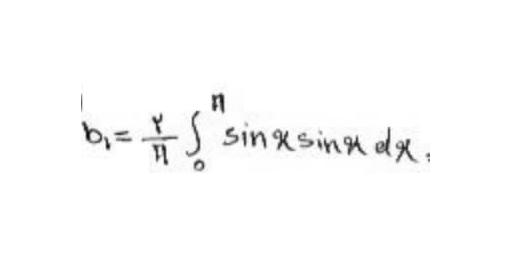 b₁ = ۲/π ∫₀^π sin x sin x dx.